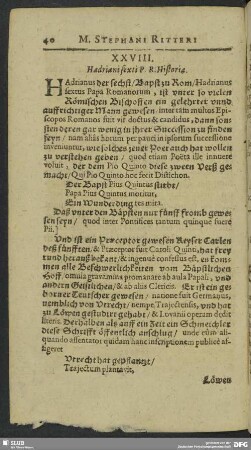 40 M. STEPHANI RITTERI
XXVIII.
Hadriani sexti P. R. Historia.
HAdrianus der sechst/ Bapst zu Rom/ Hadrianus
sextus Papa Romanorum, ist vnter so vielen
Römischen Bischoffen ein gelehrter vnnd
auffrichtiger Mann gewesen, inter tàm multos Epis-
copos Romanos fuit vir doctus & candidus, dann son-
sten deren gar wenig in ihrer Succession zu finden
seyn/ nam aliàs horum per pauci in ipsorum successione
inveniuntur, wie solches jener Poet auch hat wollen
zu verstehen geben/ quod etiam Poëta ille innuere
voluit, der dem Pio Quinto diese zween Verß ge-
macht/ Qui Pio Quinto hoc fecit Distichon.
Der Bapst Pius Quintus stirbt/
Papa Pius Quintus moritur,
Ein Wunderding/ res mira.
Daß vnter den Bäpsten nur fünff fromb gewe-
sen seyn/ quod inter Pontifices tantum quinque fuere
Pii.
Vnd ist ein Præceptor gewesen Keyser Carlen
deß fünfften, & Præceptor fuit Caroli Quinti, hat frey
rund herauß bekant/ & ingenuè confessus est, es kom-
men alle Beschwerlichkeiten vom Bäpstlichen
Hoff, omnia gravamina promanare ab aula Papali, vnd
andern Geistlichen/ & ab aliis Clericis. Er ist ein ge-
borner Teutscher gewesen/ natione fuit Germanus,
nemblich von Vtrecht/ nempe Trajectensis, vnd hat
zu Löwen gestudirt gehabt/ & Lovanii operam dedit
literis. Derhalben als auff ein Zeit ein Schmeichler
diese Schrifft öffentlich anschlug/ unde cùm ali-
quando assentator quidam hanc inscriptionem publicè af-
figeret
Vtrecht hat gepflantzt/
Trajectum plantavit,
Löwen
SLUB